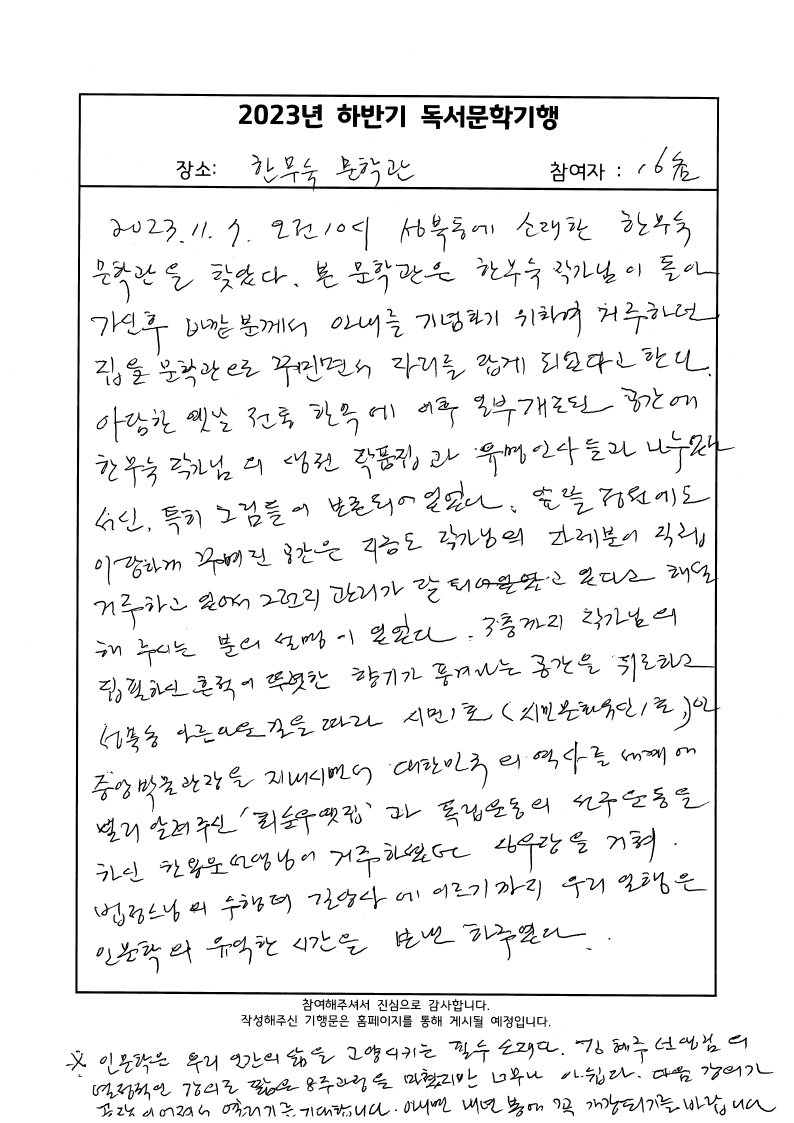 2023년 하반기 독서문학기행
장소: 한무숙 문학관 참여자 :
2023. 11. 7. 오전10시 성북동에 소재한 한무숙
문학관을 찾았다. 본 문학관은 한무숙 작가님이 돌아
가신후 바깥분께서 아내를 기념하기 위하여 거주하던
집을 문학관으로 꾸미면서 자리를 잡게 되었다고 한다.
아담한 옛날 전통 한옥에 이후 일부개조된 공간에
한무숙 작가님의 생전 작품집과 유명인사들과 나누었던
서신, 특히 그림들이 보존되어 있었다. 앞뜰 정원에도
아담하게 꾸며진 공간은 지금도 작가님의 자제분이 직접
거주하고 있어서 그런지 관리가 잘 되 고 있다고 해설
해 주시는 분의 설명이 있었다. 3층까지 작가님의
집필하신 흔적이 뚜렷한 향기가 풍겨나는 공간을 뒤로하고
성북동 아름다운 길을 따라 시민1호 (시민문화유산1호)인
중앙박물관장을 지내시면서 대한민국의 역사를 세계에
널리 알려주신 '최순우옛집' 과 독립운동의 선구운동을
하신 한용운선생님이 거주하셨던 심우장을 거쳐.
법정스님의 수행처 길상사에 이르기까지 우리 일행은
인문학의 유익한 시간을 보낸 하루였다.
참여해주셔서 진심으로 감사합니다.
작성해주신 기행문은 홈페이지를 통해 게시될 예정입니다.
※ 인문학은 우리 인간의 삶을 고양시키는 필수 소재다. 강해주 선생님의
열정적인 강의로 짧은 8주과정을 마쳤지만 너무나 아쉽다. 다음 강의가
이어져서 열리기를 기대합니다. 아니면 내년 봄에 꼭 개강되기를 바랍니다